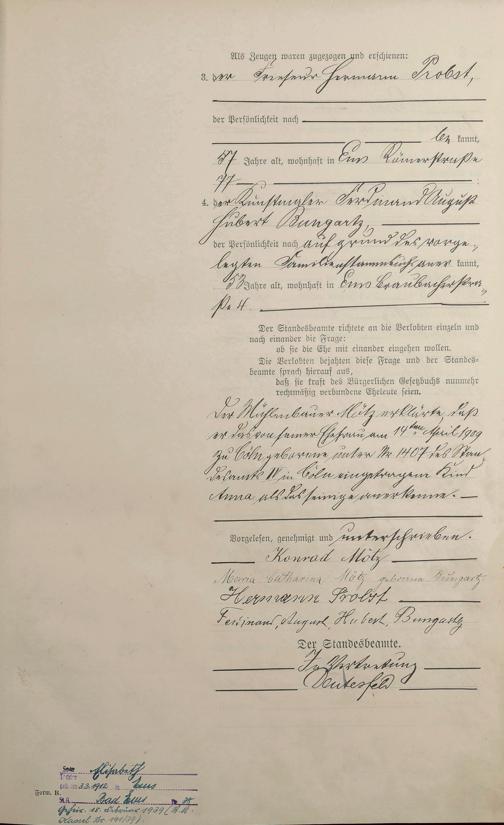 Als Zeugen waren zugezogen und erschienen:
3. der Friseur Hermann Probst,
der Persönlichkeit nach
be kannt,
37 Jahre alt, wohnhaft in Ems Römerstraße
77
4. der Kunstmaler Ferdinand August
Hubert Bungartz,
der Persönlichkeit nach auf grund des vorge-
legten Familienstammbuch aner kannt,
53 Jahre alt, wohnhaft in Ems Braubacherstra-
ße 4.
Der Standesbeamte richtete an die Verlobten einzeln und
nach einander die Frage:
ob sie die Ehe mit einander eingehen wollen.
Die Verlobten bejahten diese Frage und der Standes-
beamte sprach hierauf aus,
daß sie kraft des Bürgerlichen Gesetzbuchs nunmehr
rechtmäßig verbundene Eheleute seien.
Der Mühlenbauer Mötz erklärte, daß
er das von seiner Ehefrau am 14ten April 1909
zu Cöln geborene unter Nr. 1407 des Stan-
desamts IV in Cöln eingetragene Kind
Anna, als das seinige anerkenne.
Vorgelesen, genehmigt und unterschrieben.
Konrad Mötz
Maria Catharina Mötz geborene Bungartz
Hermann Probst
Ferdinand, August, Hubert, Bungartz
Der Standesbeamte.
In Vertretung
Elisabeth
3.3.1912 Ems
Form. B.
Bad Ems Nr. 38
15. Februar 1939